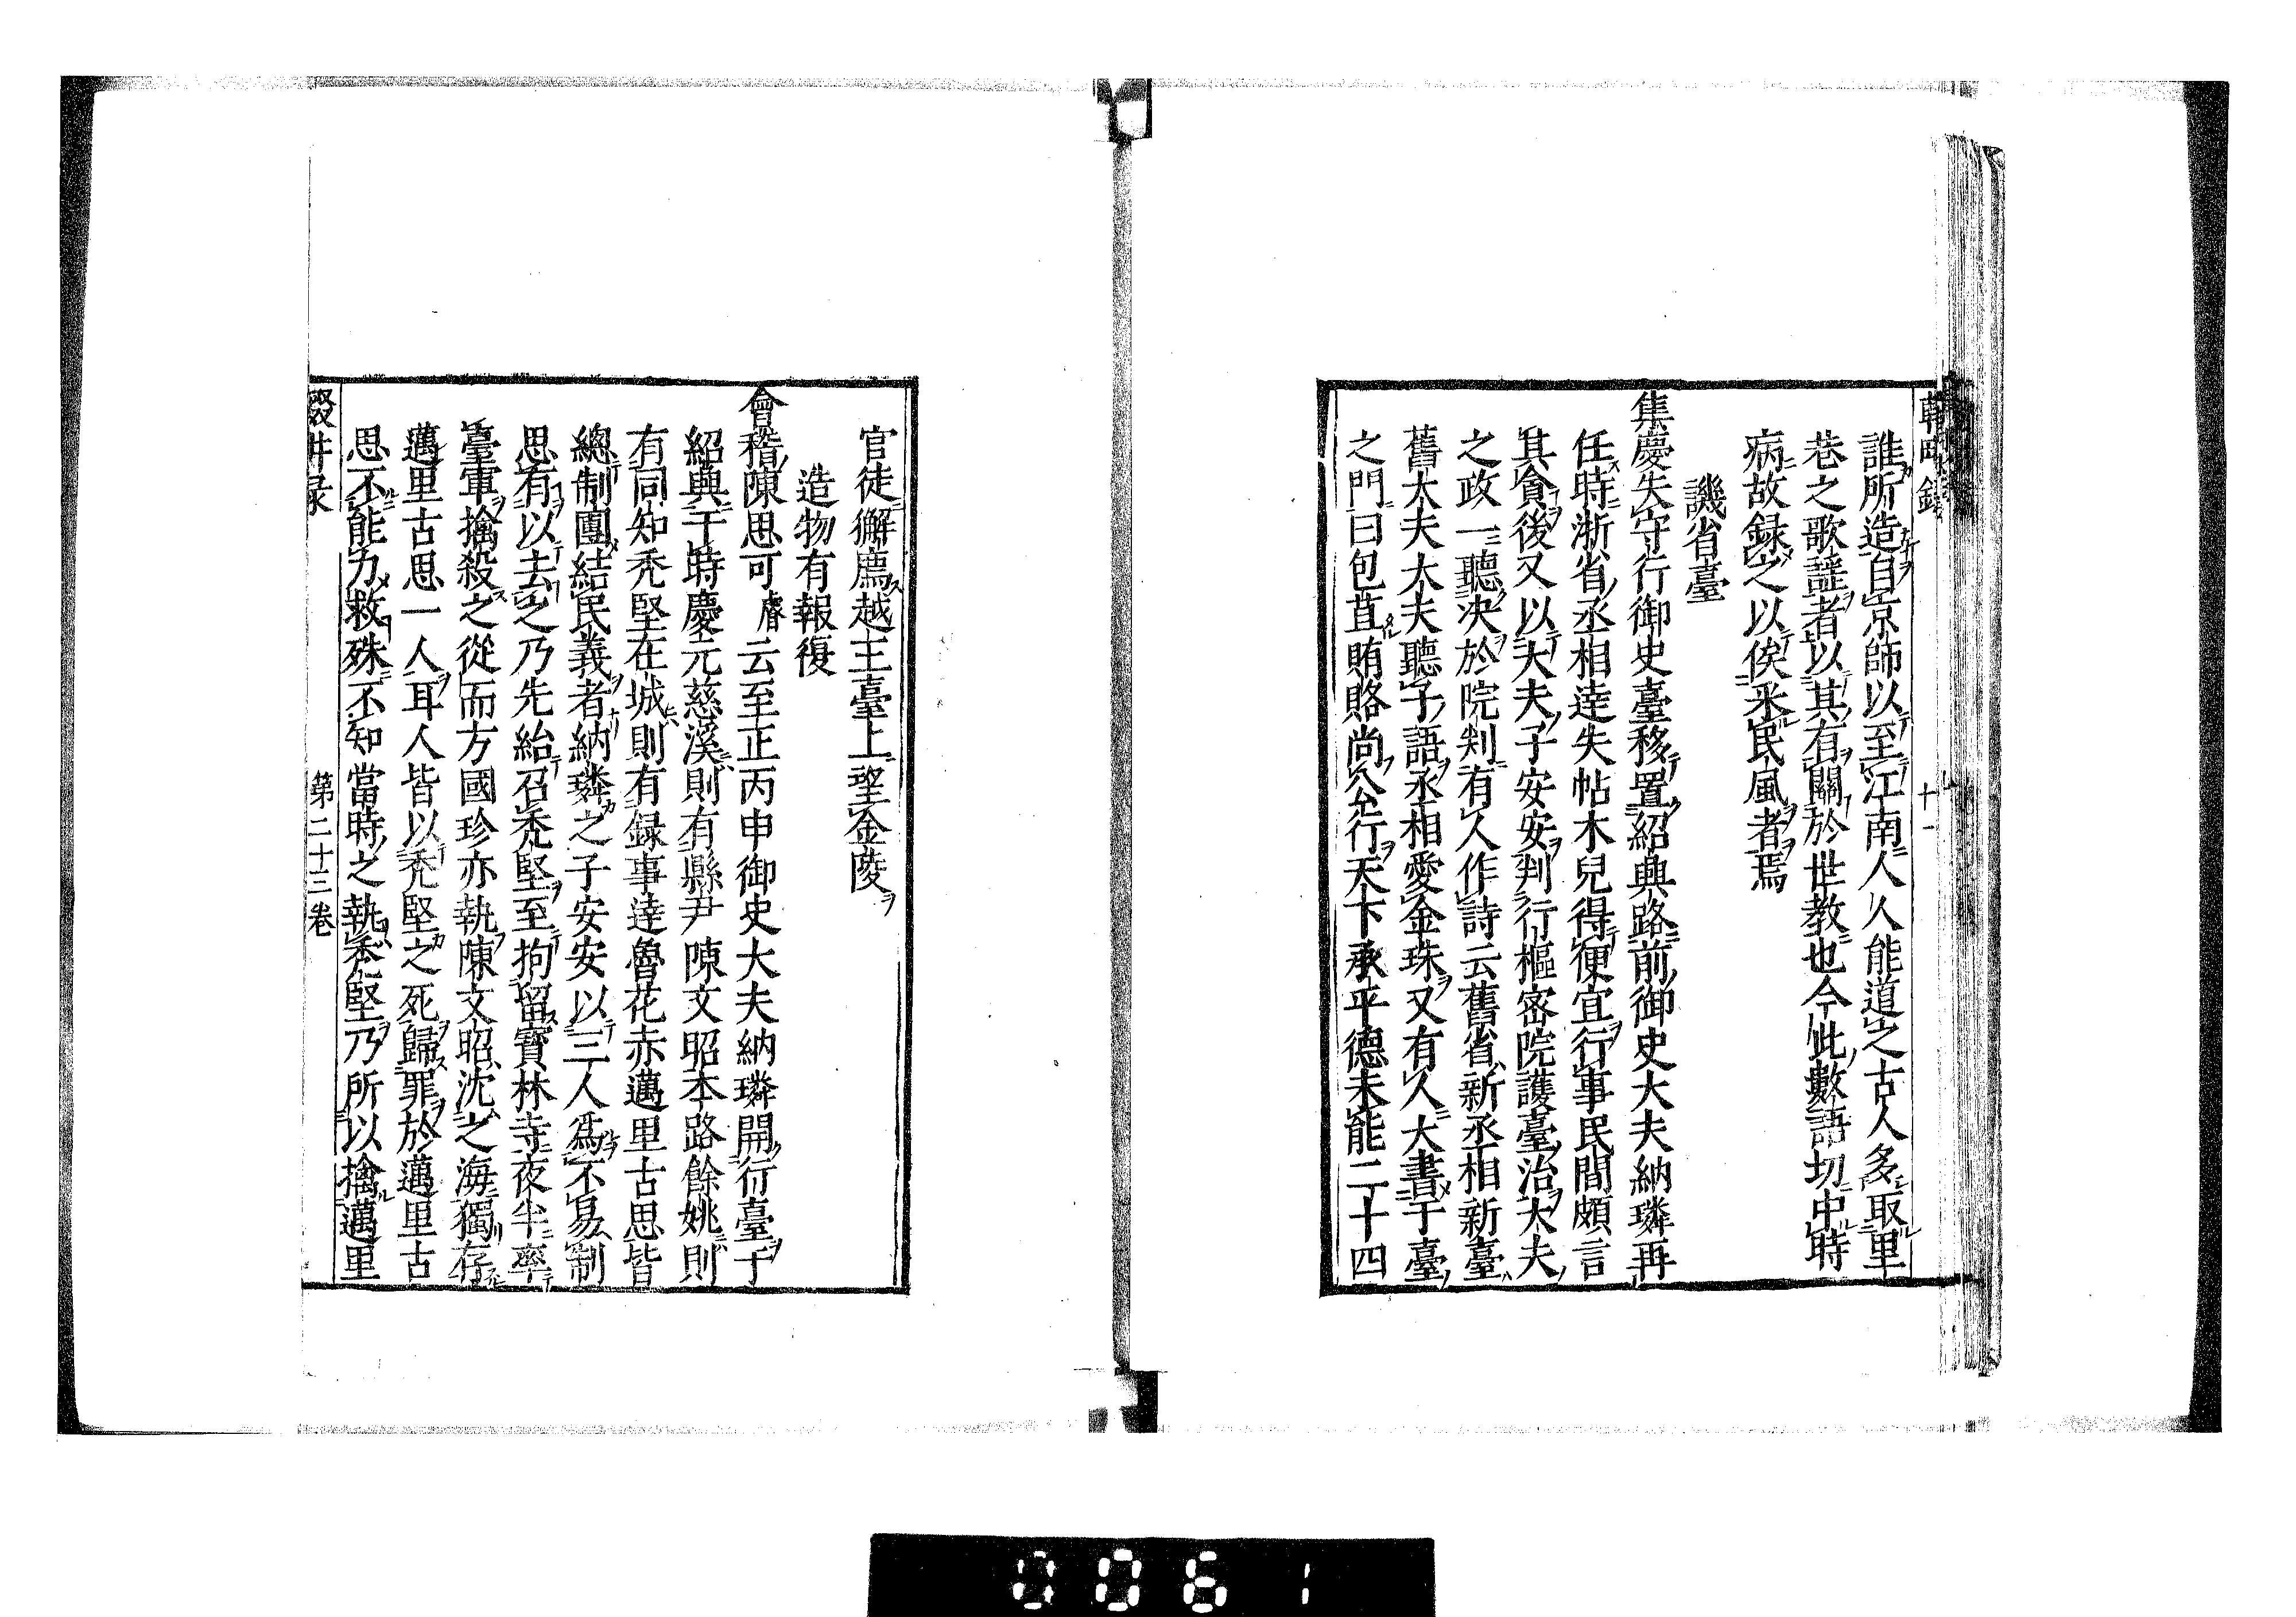 誰所造自京師以至江南人人能道之古人多取里
巷之歌謡者以其有關於世教也今此數語切中時
病故録之以俟采民風者焉
譏省臺
集慶失守行御史臺移置紹興路前御史大夫納璘再
任時浙省丞相達失帖木兒得便宜行事民間頗言
其貪後又以大夫子安安判行樞密院護臺治大夫
之政一聽决於院判有人作詩云舊省新丞相新臺
舊大夫大夫聽子語丞相愛金珠又有人大書于臺
之門曰包苴賄賂尚公行天下承平德未能二十四
官徒獬廌越王臺上望金陵
造物有報復
會稽陳思可睿云至正丙申御史大夫納璘開行臺于
紹興于時慶元慈溪則有縣尹陳文昭本路餘姚則
有同知禿堅在城則有録事達魯花赤邁里古思皆
總制團結民義者納璘之子安安以三人爲不易制
思有以去之乃先紿召禿堅至拘留寳林寺夜半率
臺軍擒殺之從而方國珍亦執陳文昭沈之海獨存
邁里古思一人耳人皆以禿堅之死歸罪於邁里古
思不能力救殊不知當時之執禿堅乃所以擒邁里
第二十三卷
0061